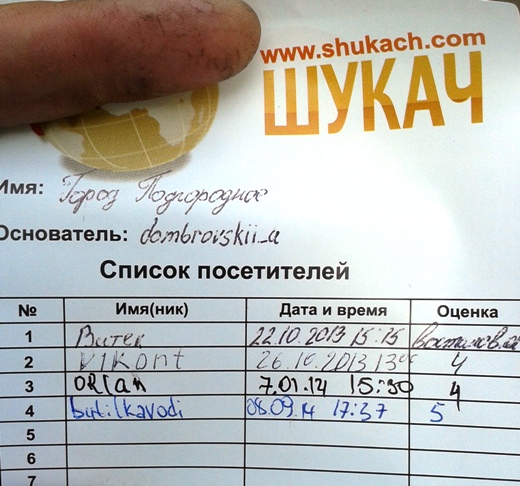 www.shukach.com
ШУКАЧ
Имя: Город Подгородное
Основатель: dombrovskii_a
Список посетителей
№ Имя(ник) Дата и время Оценка
1 Витек 22.10.2013 15:15
2 Vikont 26.10.2013 13⁰⁰ 4
3 ORLan 7.01.14 15:30 4
4 butilkavodi 08.09.14 17:37 5
5
6
7